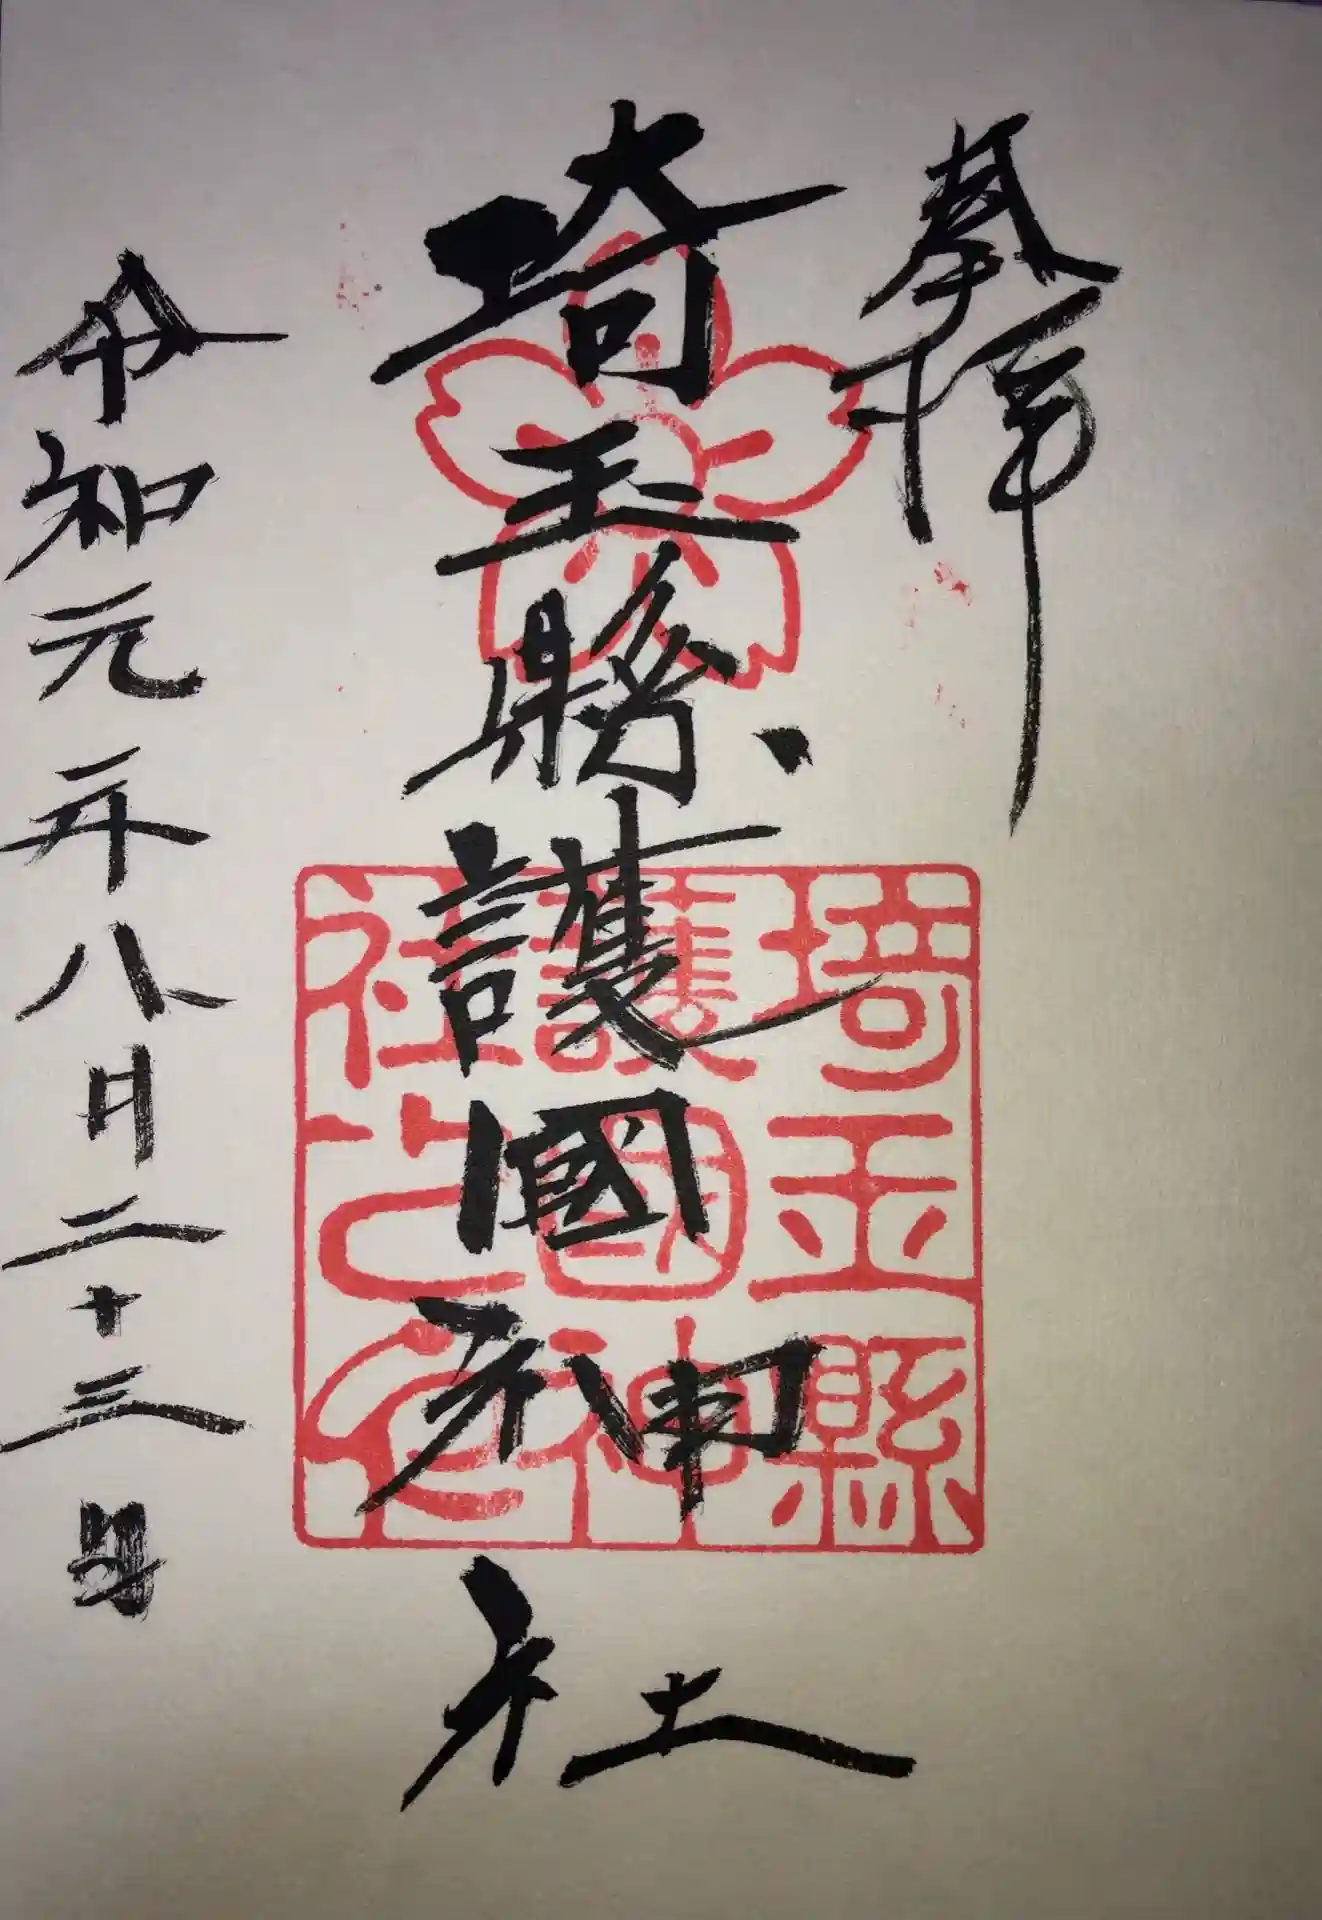 奉拝
埼玉縣護國神社
埼玉縣
護國神
社之印
令和元年八月二十三日